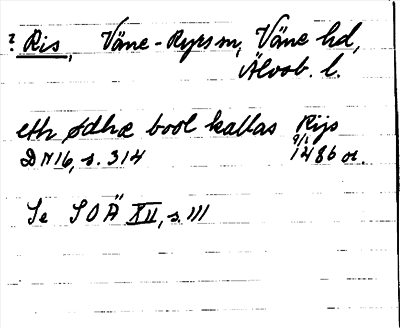 ? Ris, Väne-Ryrs sn, Väne hd,
Älvsb. l.
eth ødhæ bool kallas Rijs
DN 16, s. 314 9/1 1486 or.
Se SOÄ XII, s. 111